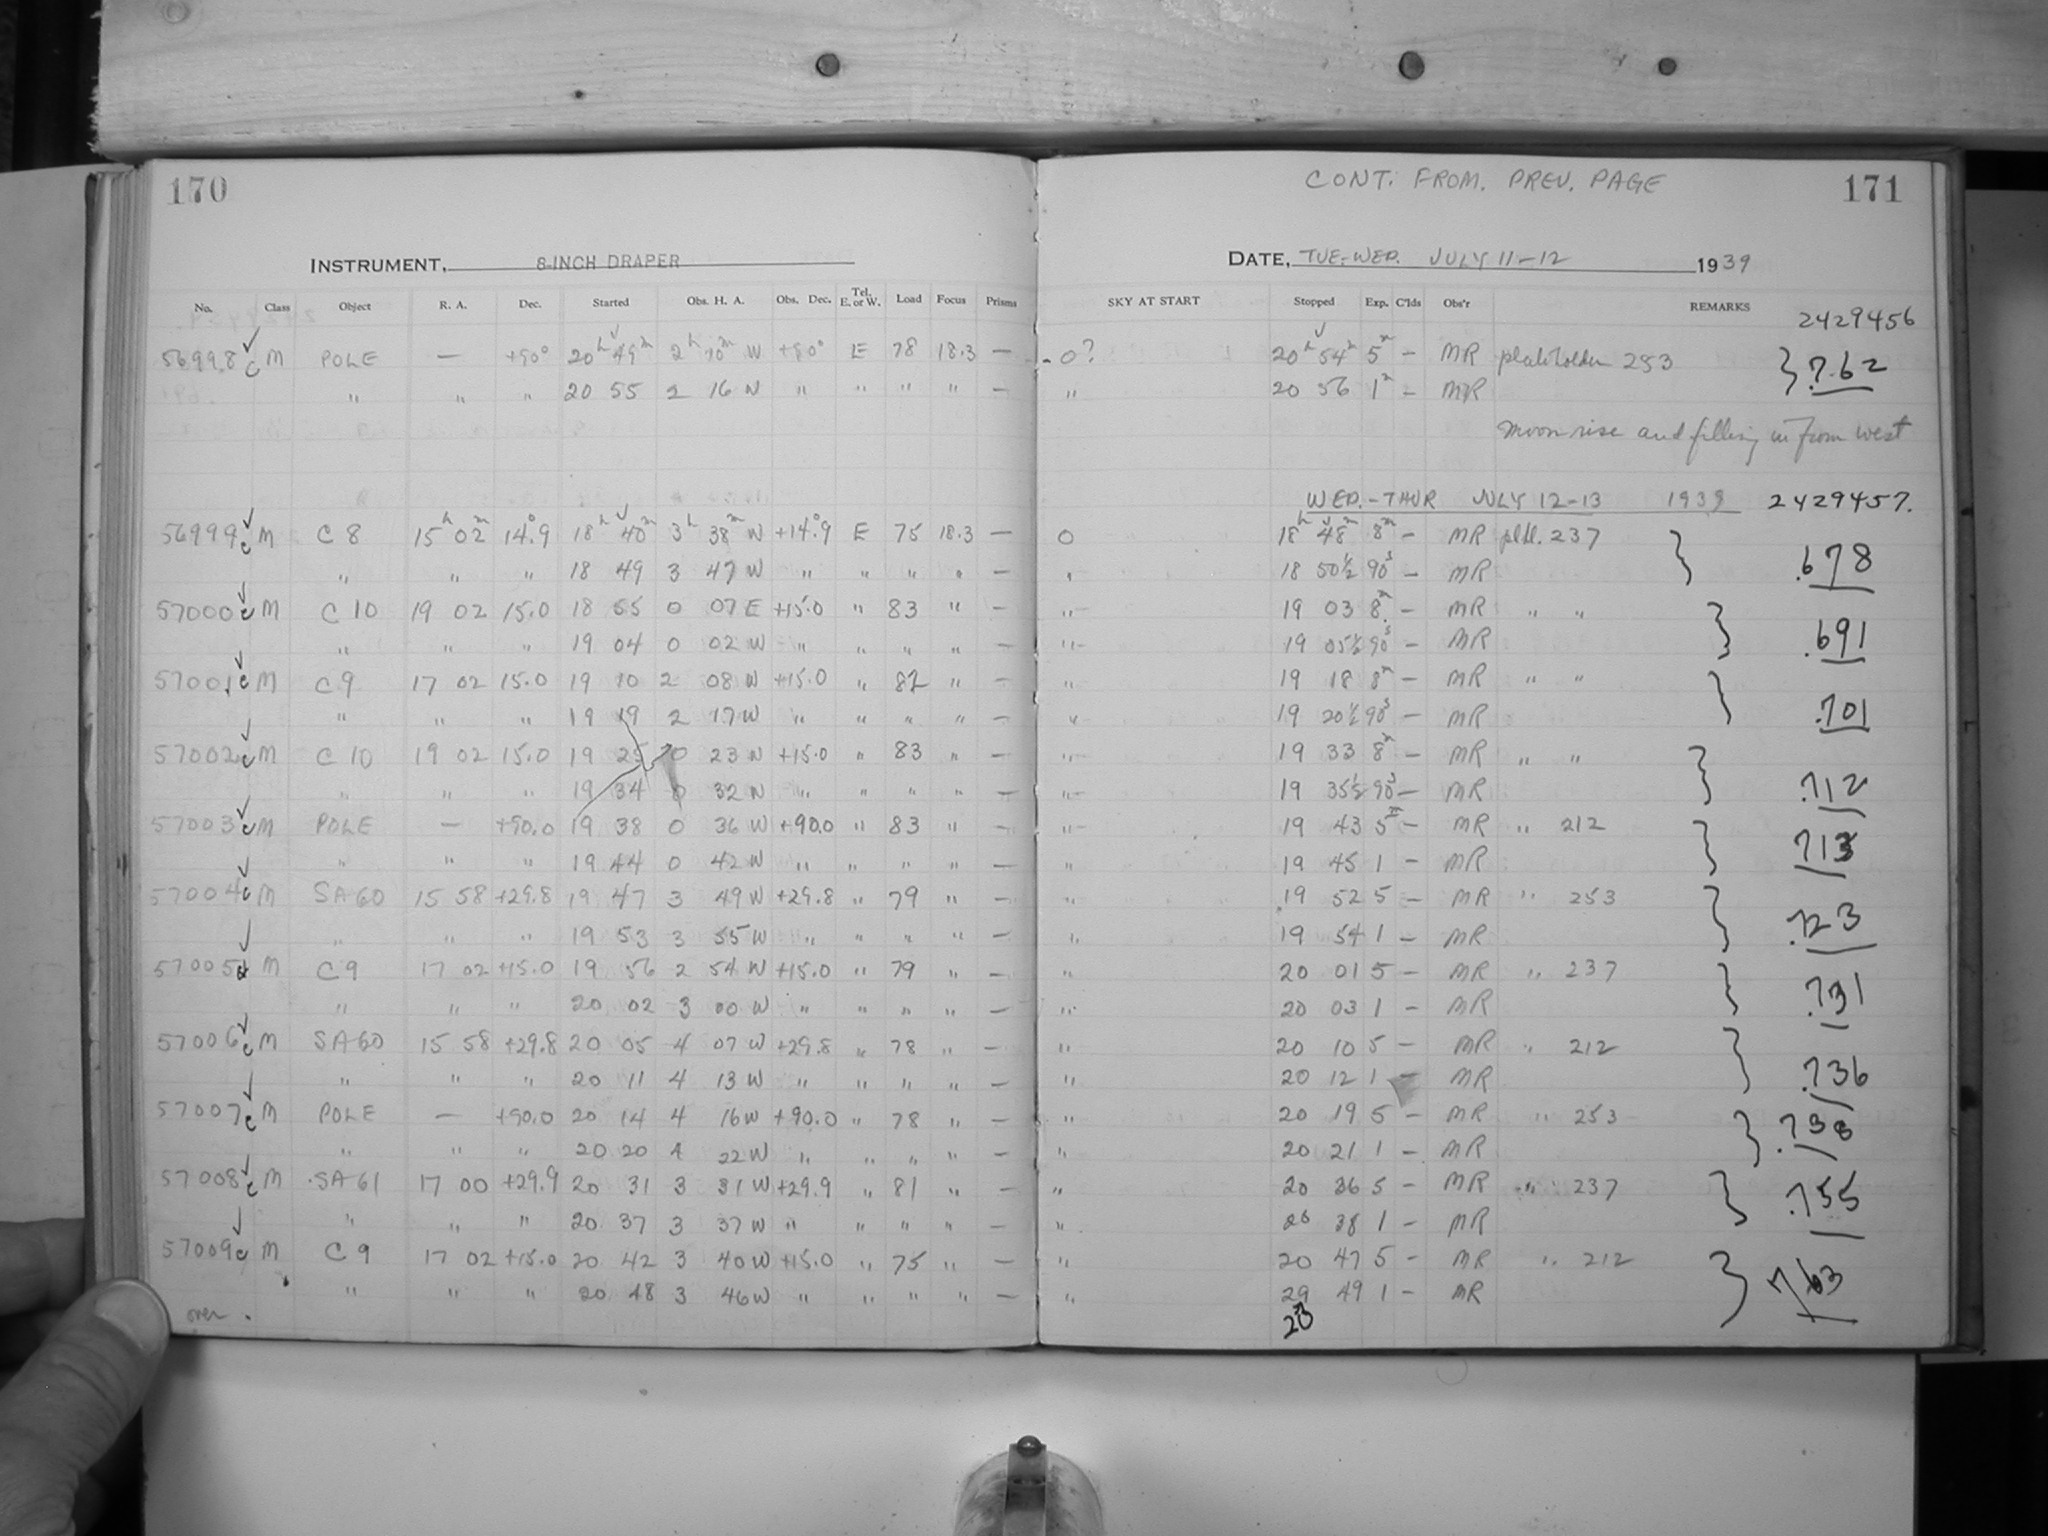 170
INSTRUMENT, 8-INCH DRAPER
No. Class Object R. A. Dec. Started Obs. H. A. Obs. Dec. Tel. E. or W. Load Focus Prisms
56998 c M POLE — +90° 20h 49m 2h 10m W +90° E 78 18.3 —
" " " 20 55 2 16 W " " " " —
56999 c M C 8 15h 02m 14.°9 18h 40m 3h 38m W +14.°9 E 75 18.3 —
" " " 18 49 3 47 W " " " " —
57000 c M C 10 19 02 15.0 18 55 0 07 E +15.0 " 83 " —
" " " 19 04 0 02 W " " " " —
57001 c M C 9 17 02 15.0 19 10 2 08 W +15.0 " 82 " —
" " " 19 19 2 17 W " " " " —
57002 c M C 10 19 02 15.0 19 25 0 23 W +15.0 " 83 " —
" " " 19 34 0 32 W " " " " —
57003 c M POLE — +90.0 19 38 0 36 W +90.0 " 83 " —
" " " 19 44 0 42 W " " " " —
57004 c M SA60 15 58 +29.8 19 47 3 49 W +29.8 " 79 " —
" " " 19 53 3 55 W " " " " —
57005 c M C 9 17 02 +15.0 19 56 2 54 W +15.0 " 79 " —
" " " 20 02 3 00 W " " " " —
57006 c M SA60 15 58 +29.8 20 05 4 07 W +29.8 " 78 " —
" " " 20 11 4 13 W " " " " —
57007 c M POLE — +90.0 20 14 4 16 W +90.0 " 78 " —
" " " 20 20 4 22 W " " " " —
57008 c M SA61 17 00 +29.9 20 31 3 31 W +29.9 " 81 " —
" " " 20 37 3 37 W " " " " —
57009 c M C 9 17 02 +15.0 20 42 3 40 W +15.0 " 75 " —
" " " 20 48 3 46 W " " " " —
over.
CONT. FROM. PREV. PAGE 171
DATE, TUE-WED. JULY 11-12 1939
SKY AT START Stopped Exp. C'lds Obs'r REMARKS
2429456
0? 20h 54m 5m — MR plateholder 253 } .762
" 20 56 1m — MR
Moon rise and filling in from west
WED.-THUR JULY 12-13 1939 2429457.
0 18h 48m 8m — MR pltl. 237 } .678
" 18 50½ 90s — MR
" 19 03 8m — MR " " } .691
" 19 05½ 90s — MR
" 19 18 8m — MR " " } .701
" 19 20½ 90s — MR
" 19 33 8m — MR " " } .712
" 19 35½ 90s — MR
" 19 43 5m — MR " 212 } .713
" 19 45 1 — MR
" 19 52 5 — MR " 253 } .723
" 19 54 1 — MR
" 20 01 5 — MR " 237 } .731
" 20 03 1 — MR
" 20 10 5 — MR " 212 } .736
" 20 12 1 — MR
" 20 19 5 — MR " 253 } .738
" 20 21 1 — MR
" 20 36 5 — MR " 237 } .755
" 20 38 1 — MR
" 20 47 5 — MR " 212 } .763
" 29 49 1 — MR
20